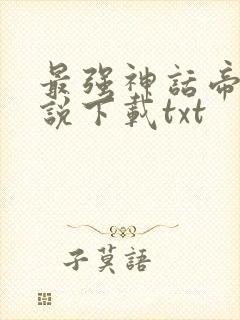 最強神話帝
說下載txt
子莫語